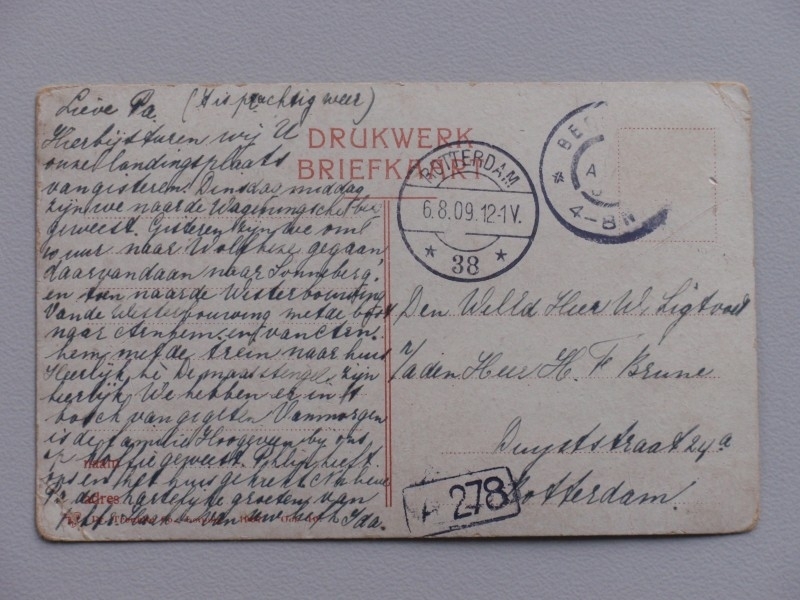 Lieve Pa. (Tis prachtig weer)
Hierbij sturen wij U
onze landingsplaats
van gisteren. Dinsdag middag
zijn we naar de Wageningsche berg
geweest. Gisteren zijn we om
10 uur naar Wolfheze gegaan
daarvandaan naar Sonneberg.
en toen naar de Westerbouwing
Van de Westerbouwing met de boot
naar Arnhem. en van Arn-
hem met de trein naar huis
Heerlijk hé. De maasstengel zijn
heerlijk. We hebben er in 't
bosch van gegeten Van morgen
is de familie Hoogeveen bij ons
koffie geweest. heeft
ons en het huis
Pa de hartelijke groeten van
van uw Ida.
naam
adres
DRUKWERK
BRIEFKAART
ROTTERDAM
6.8.09.12-1V.
* 38 *
BEE
A
4-8N
Den WelEd Heer W. Ligtvoet
p/a den Heer H. F. Brune
Duyststraat 24a
Rotterdam.
A 278